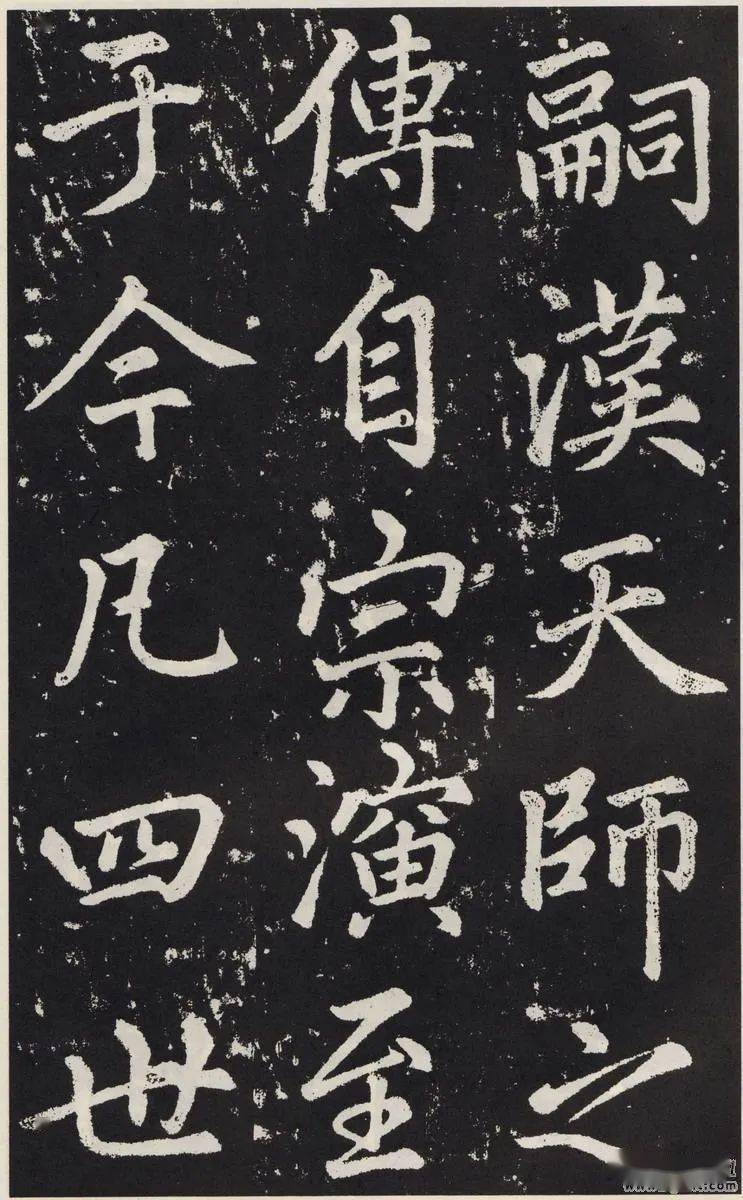 嗣漢天師之
傳自宗演至
于今凡四世